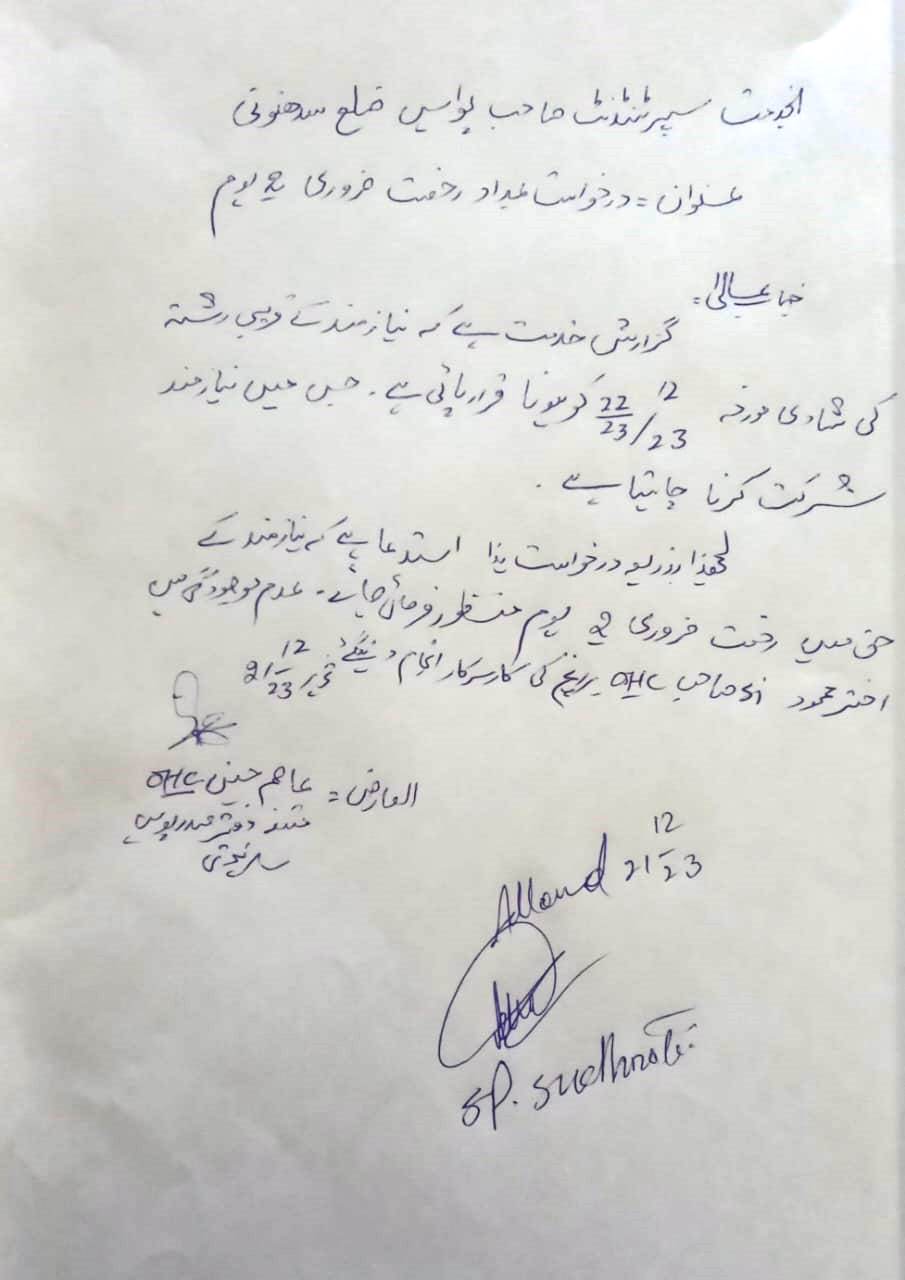 بخدمت سپرٹنڈنٹ صاحب پولیس ضلع سدھنوتی
عنوان = درخواست بمداد رخصت ضروری 2 یوم
جناب عالی =
گزارش خدمت ہے کہ نیازمند کے قریبی رشتہ
کی شادی مورخہ 22/23 12/23 کو ہونا قرار پائی ہے ۔ جس میں نیازمند
شرکت کرنا چاہتا ہے ۔
لہذا بذریعہ درخواست ہذا استدعا ہے کہ نیازمند کے
حق میں رخصت ضروری 2 یوم منظور فرمائی جائے ۔ عدم موجودگی میں
اختر محمود صاحب OHC کی کار سرکار انجام دینگے 21 12/23
العارض = عاصم حنیف OHC
دفتر صدر پولیس
سدھنوتی
Allowed 21 12/23
SP. Sudhnoti